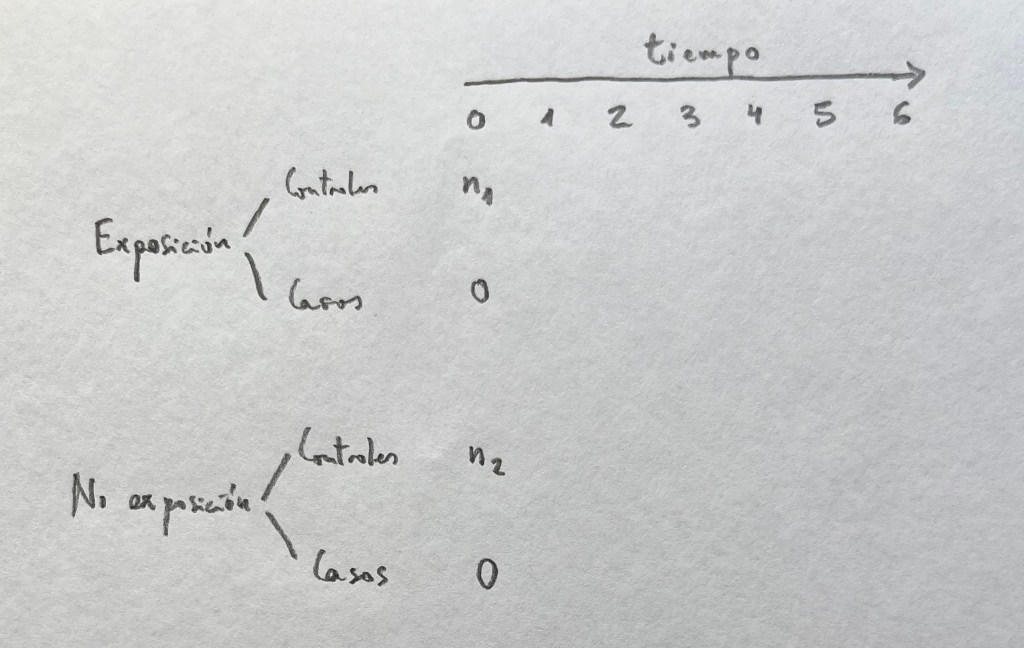 tiempo
0 1 2 3 4 5 6
Controles n1
Exposición
Casos 0
Controles n2
No exposición
Casos 0